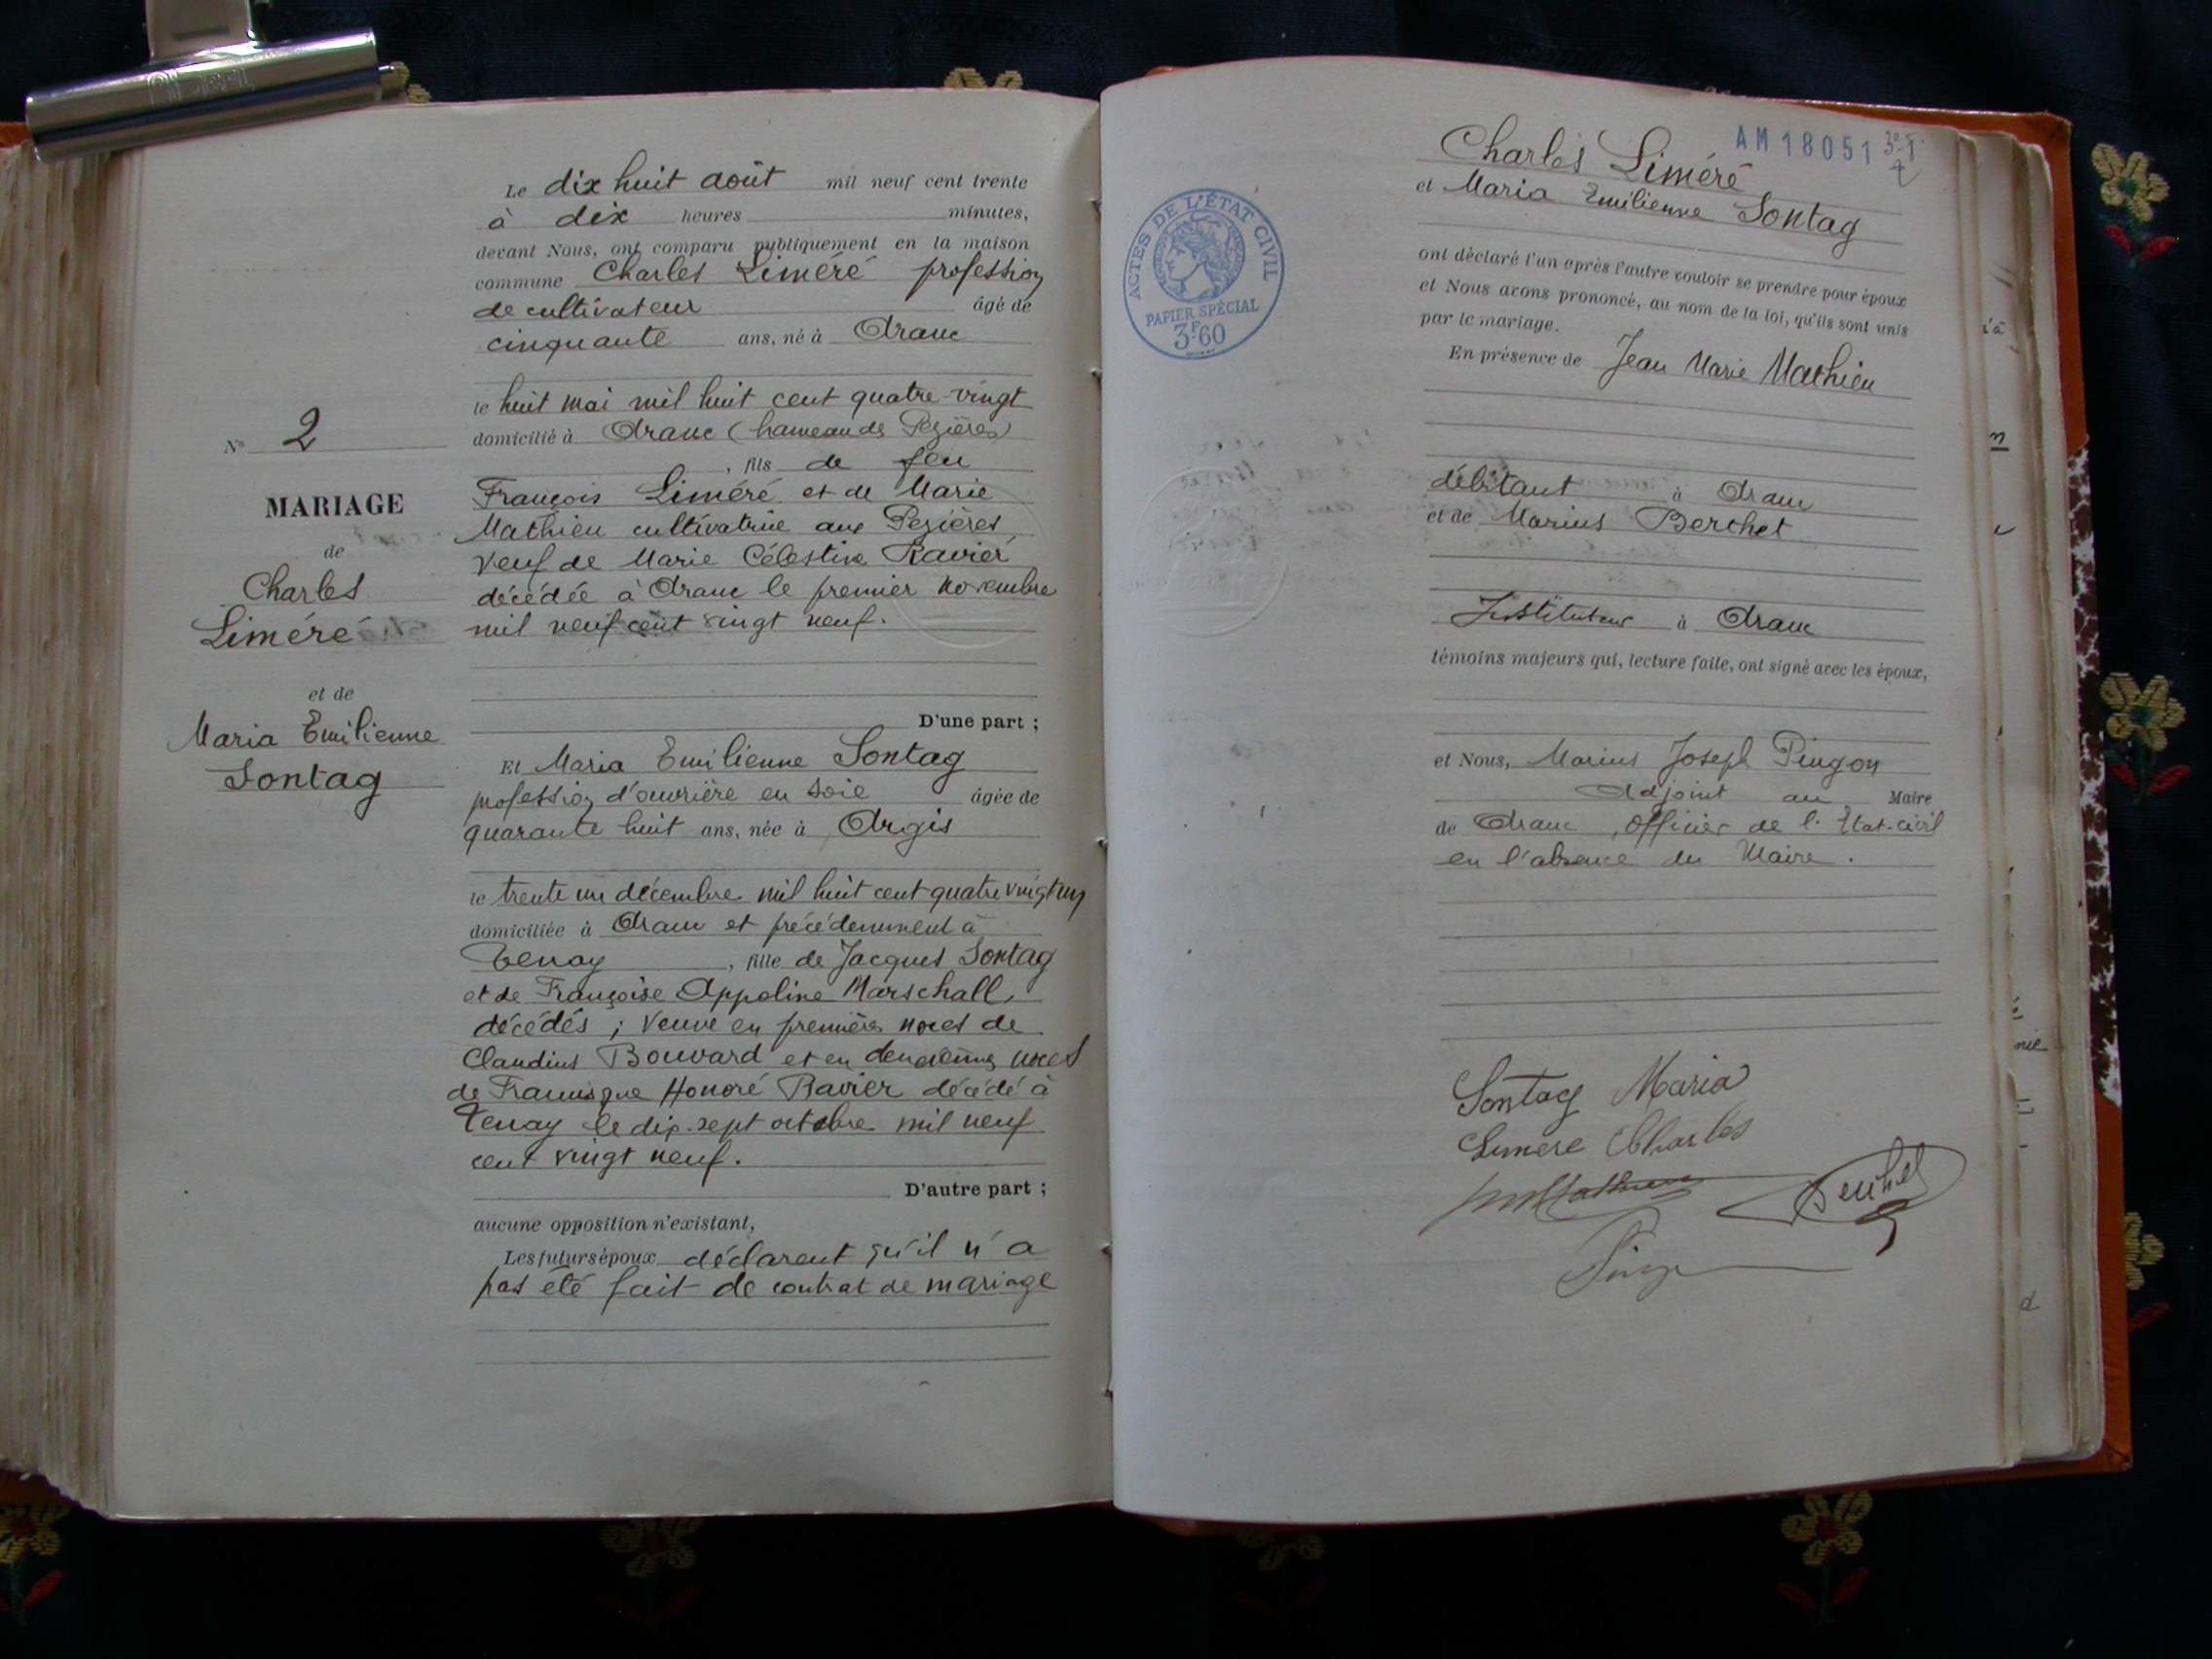 Le dix huit août mil neuf cent trente
à dix heures minutes,
devant Nous, ont comparu publiquement en la maison
commune Charles Liméré profession
de cultivateur âgé de
cinquante ans, né à Aranc
le huit mai mil huit cent quatre-vingt
domicilié à Aranc (hameau des Pezières)
, fils de feu
François Liméré et de Marie
Mathieu cultivatrice aux Pezières
veuf de Marie Célestine Ravier
décédée à Aranc le premier novembre
mil neuf cent vingt neuf.
D'une part ;
N° 2
MARIAGE
de
Charles
Liméré
et de
Maria Emilienne
Sontag
Et Maria Emilienne Sontag
profession d'ouvrière en soie âgée de
quarante huit ans, née à Argis
le trente un décembre mil huit cent quatre vingt un
domiciliée à Aranc et précédemment à
Tenay, fille de Jacques Sontag
et de Françoise Appoline Marschall,
décédés ; veuve en premières noces de
Claudius Bouvard et en deuxièmes noces
de Francisque Honoré Ravier décédé à
Tenay le dix-sept octobre mil neuf
cent vingt neuf.
D'autre part ;
aucune opposition n'existant,
Les futurs époux déclarent qu'il n'a
pas été fait de contrat de mariage
AM 18051
ACTES DE L'ÉTAT CIVIL
PAPIER SPÉCIAL
3F60
Charles Liméré
et Maria Emilienne Sontag
ont déclaré l'un après l'autre vouloir se prendre pour époux
et Nous avons prononcé, au nom de la loi, qu'ils sont unis
par le mariage.
En présence de Jean Marie Mathieu
débitant à Aranc
et de Marius Berthet
Instituteur à Aranc
témoins majeurs qui, lecture faite, ont signé avec les époux,
et Nous, Marius Joseph Pingon
Adjoint au Maire
de Aranc, officier de l'Etat-civil
en l'absence du Maire.
Sontag Maria
Limere Charles
JMMathieu
Berthet